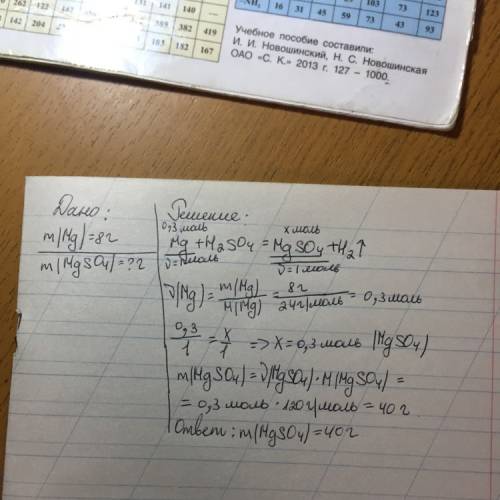 260 262 122 131 141 140 —
142 204 382 419
153 152 167
–NH₂ 16 31 45 59 73 43 93
103 73 123
Учебное пособие составили:
И. И. Новошинский, Н. С. Новошинская
ОАО «С. К.» 2013 г. 127 – 1000.
Дано:
m(Mg)=8г
m(MgSO₄)=?г
Решение:
0,3 моль х моль
Mg+H₂SO₄=MgSO₄+H₂↑
ν=1моль ν=1моль
ν(Mg)=m(Mg)/M(Mg)=8г/24г/моль=0,3моль
0,3/1=х/1 => х=0,3моль (MgSO₄)
m(MgSO₄)=ν(MgSO₄)·M(MgSO₄)=
=0,3моль·120г/моль=40г
Ответ: m(MgSO₄)=40г